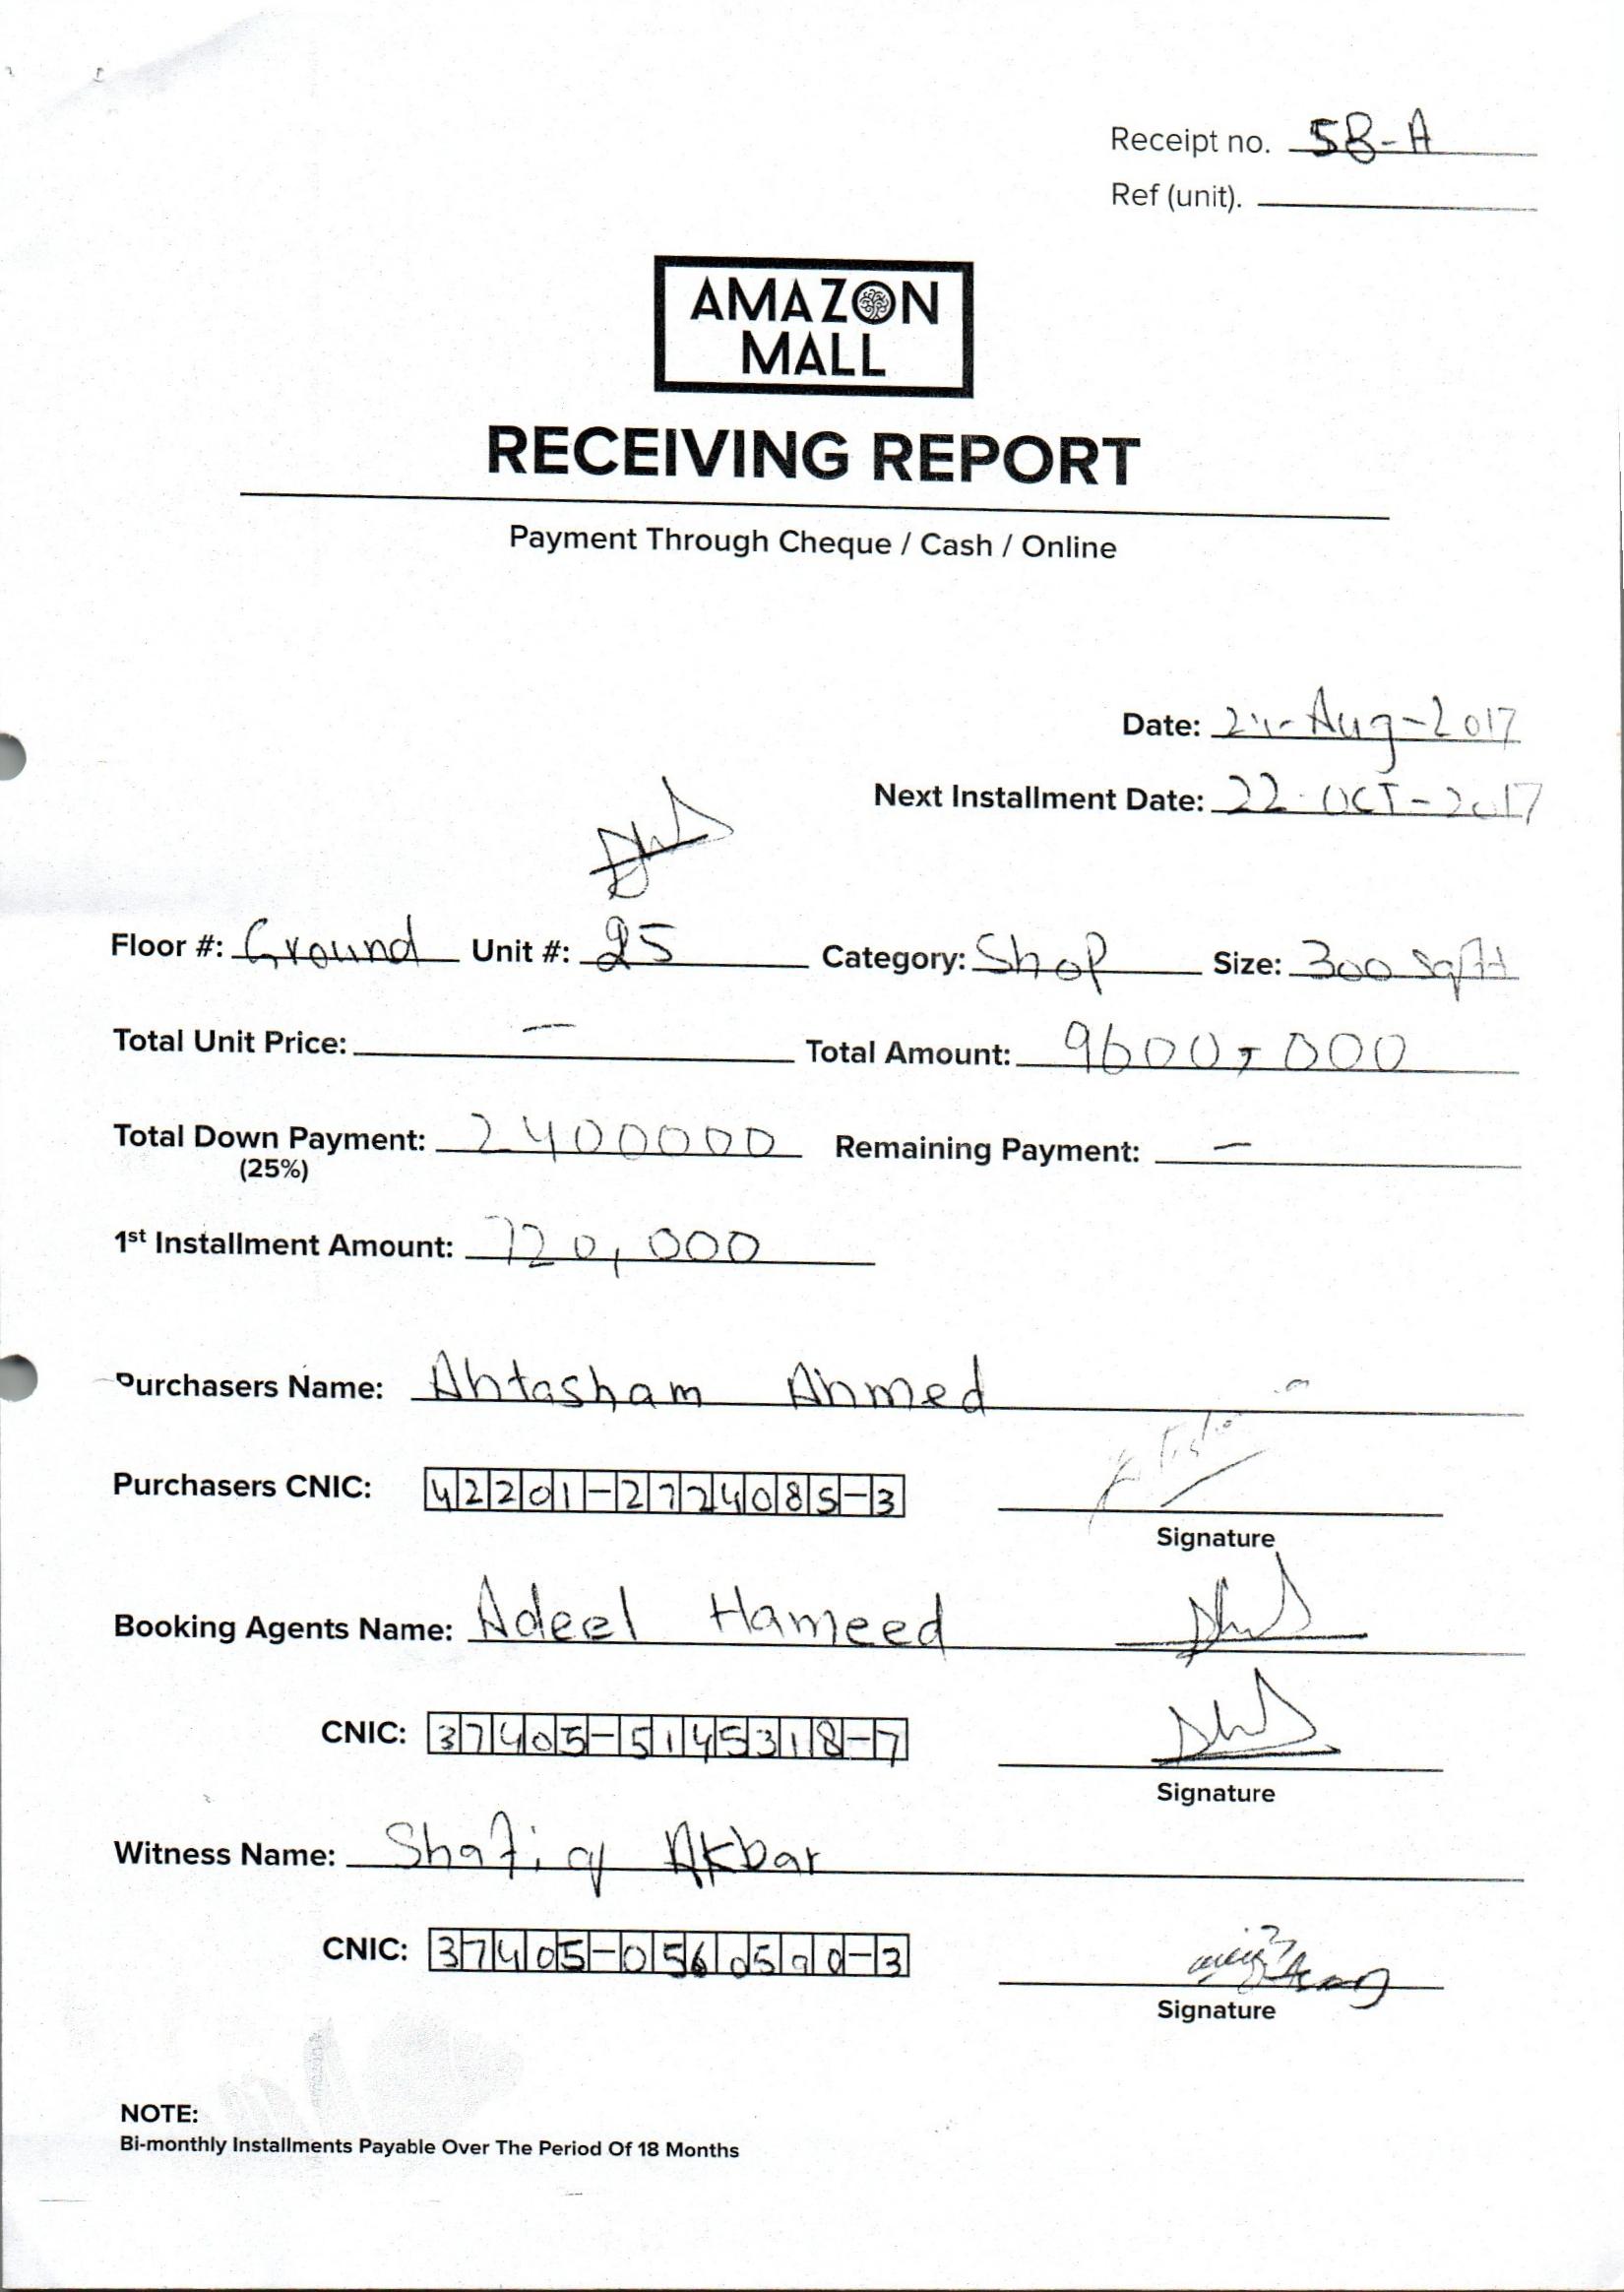 Receipt no. 58-A
Ref (unit).
AMAZON
MALL
RECEIVING REPORT
Payment Through Cheque / Cash / Online
Date: Aug-2017
Next Installment Date: 22-OCT-2017
Floor #: Ground Unit #: 25 Category: Shop Size: 300 Sqft
Total Unit Price: — Total Amount: 9600,000
Total Down Payment: 2400000 Remaining Payment: —
(25%)
1st Installment Amount: 720,000
Purchasers Name: Ahtasham Ahmed
Purchasers CNIC: 42201-2724085-3
Signature
Booking Agents Name: Adeel Hameed
CNIC: 37405-5145318-7
Signature
Witness Name: Shafiq Akbar
CNIC: 37405-0560590-3
Signature
NOTE:
Bi-monthly Installments Payable Over The Period Of 18 Months